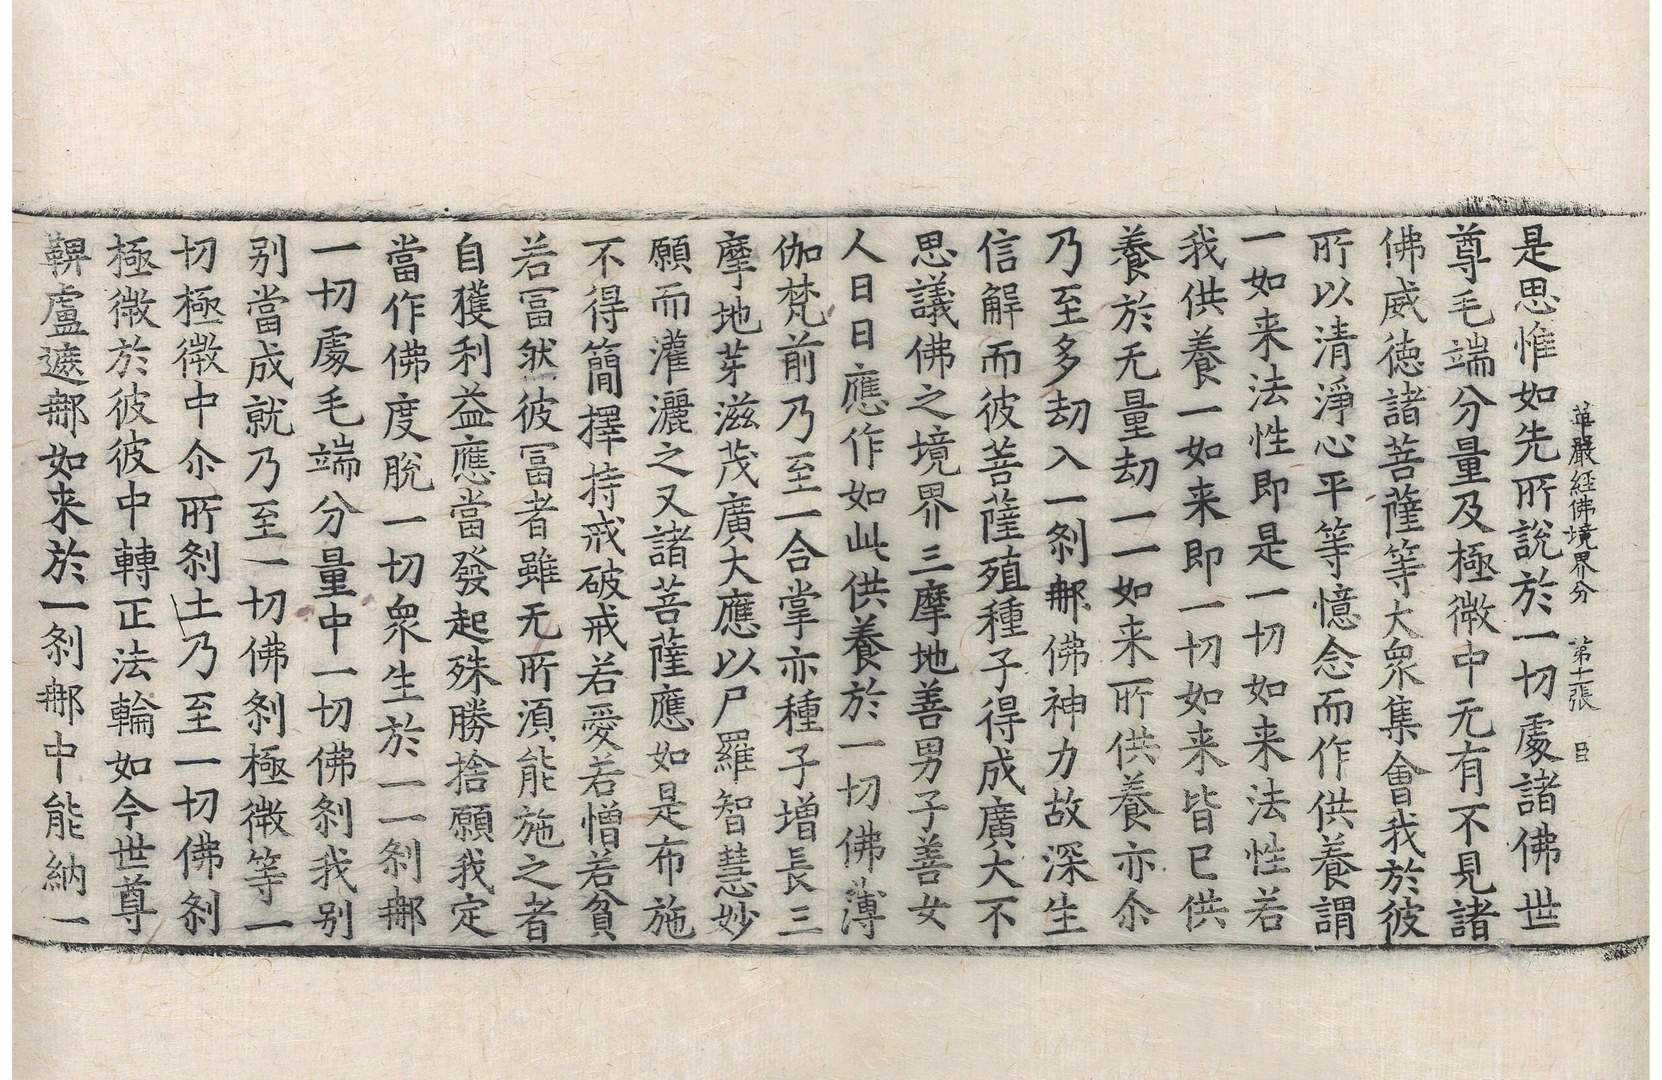 華嚴經佛境界分　第十一張　目
是思惟如先所說於一切處諸佛世
尊毛端分量及極微中无有不見諸
佛威德諸菩薩等大眾集會我於彼
所以清淨心平等憶念而作供養謂
一如来法性即是一切如来法性若
我供養一如来即一切如来皆已供
養於无量劫一一如来所供養亦尒
乃至多劫入一刹那佛神力故深生
信解而彼菩薩殖種子得成廣大不
思議佛之境界三摩地善男子善女
人日日應作如此供養於一切佛薄
伽梵前乃至一合掌亦種子增長三
摩地芽滋茂廣大應以尸羅智慧妙
願而灌灑之又諸菩薩應如是布施
不得簡擇持戒破戒若愛若憎若貧
若冨然彼冨者雖无所湏能施之者
自獲利益應當發起殊勝捨願我定
當作佛度脫一切眾生於一一刹那
一切處毛端分量中一切佛刹我别
别當成就乃至一切佛刹極微等一
切極微中尒所刹土乃至一切佛刹
極微於彼彼中轉正法輪如今世尊
鞞盧遮那如来於一刹那中能納一